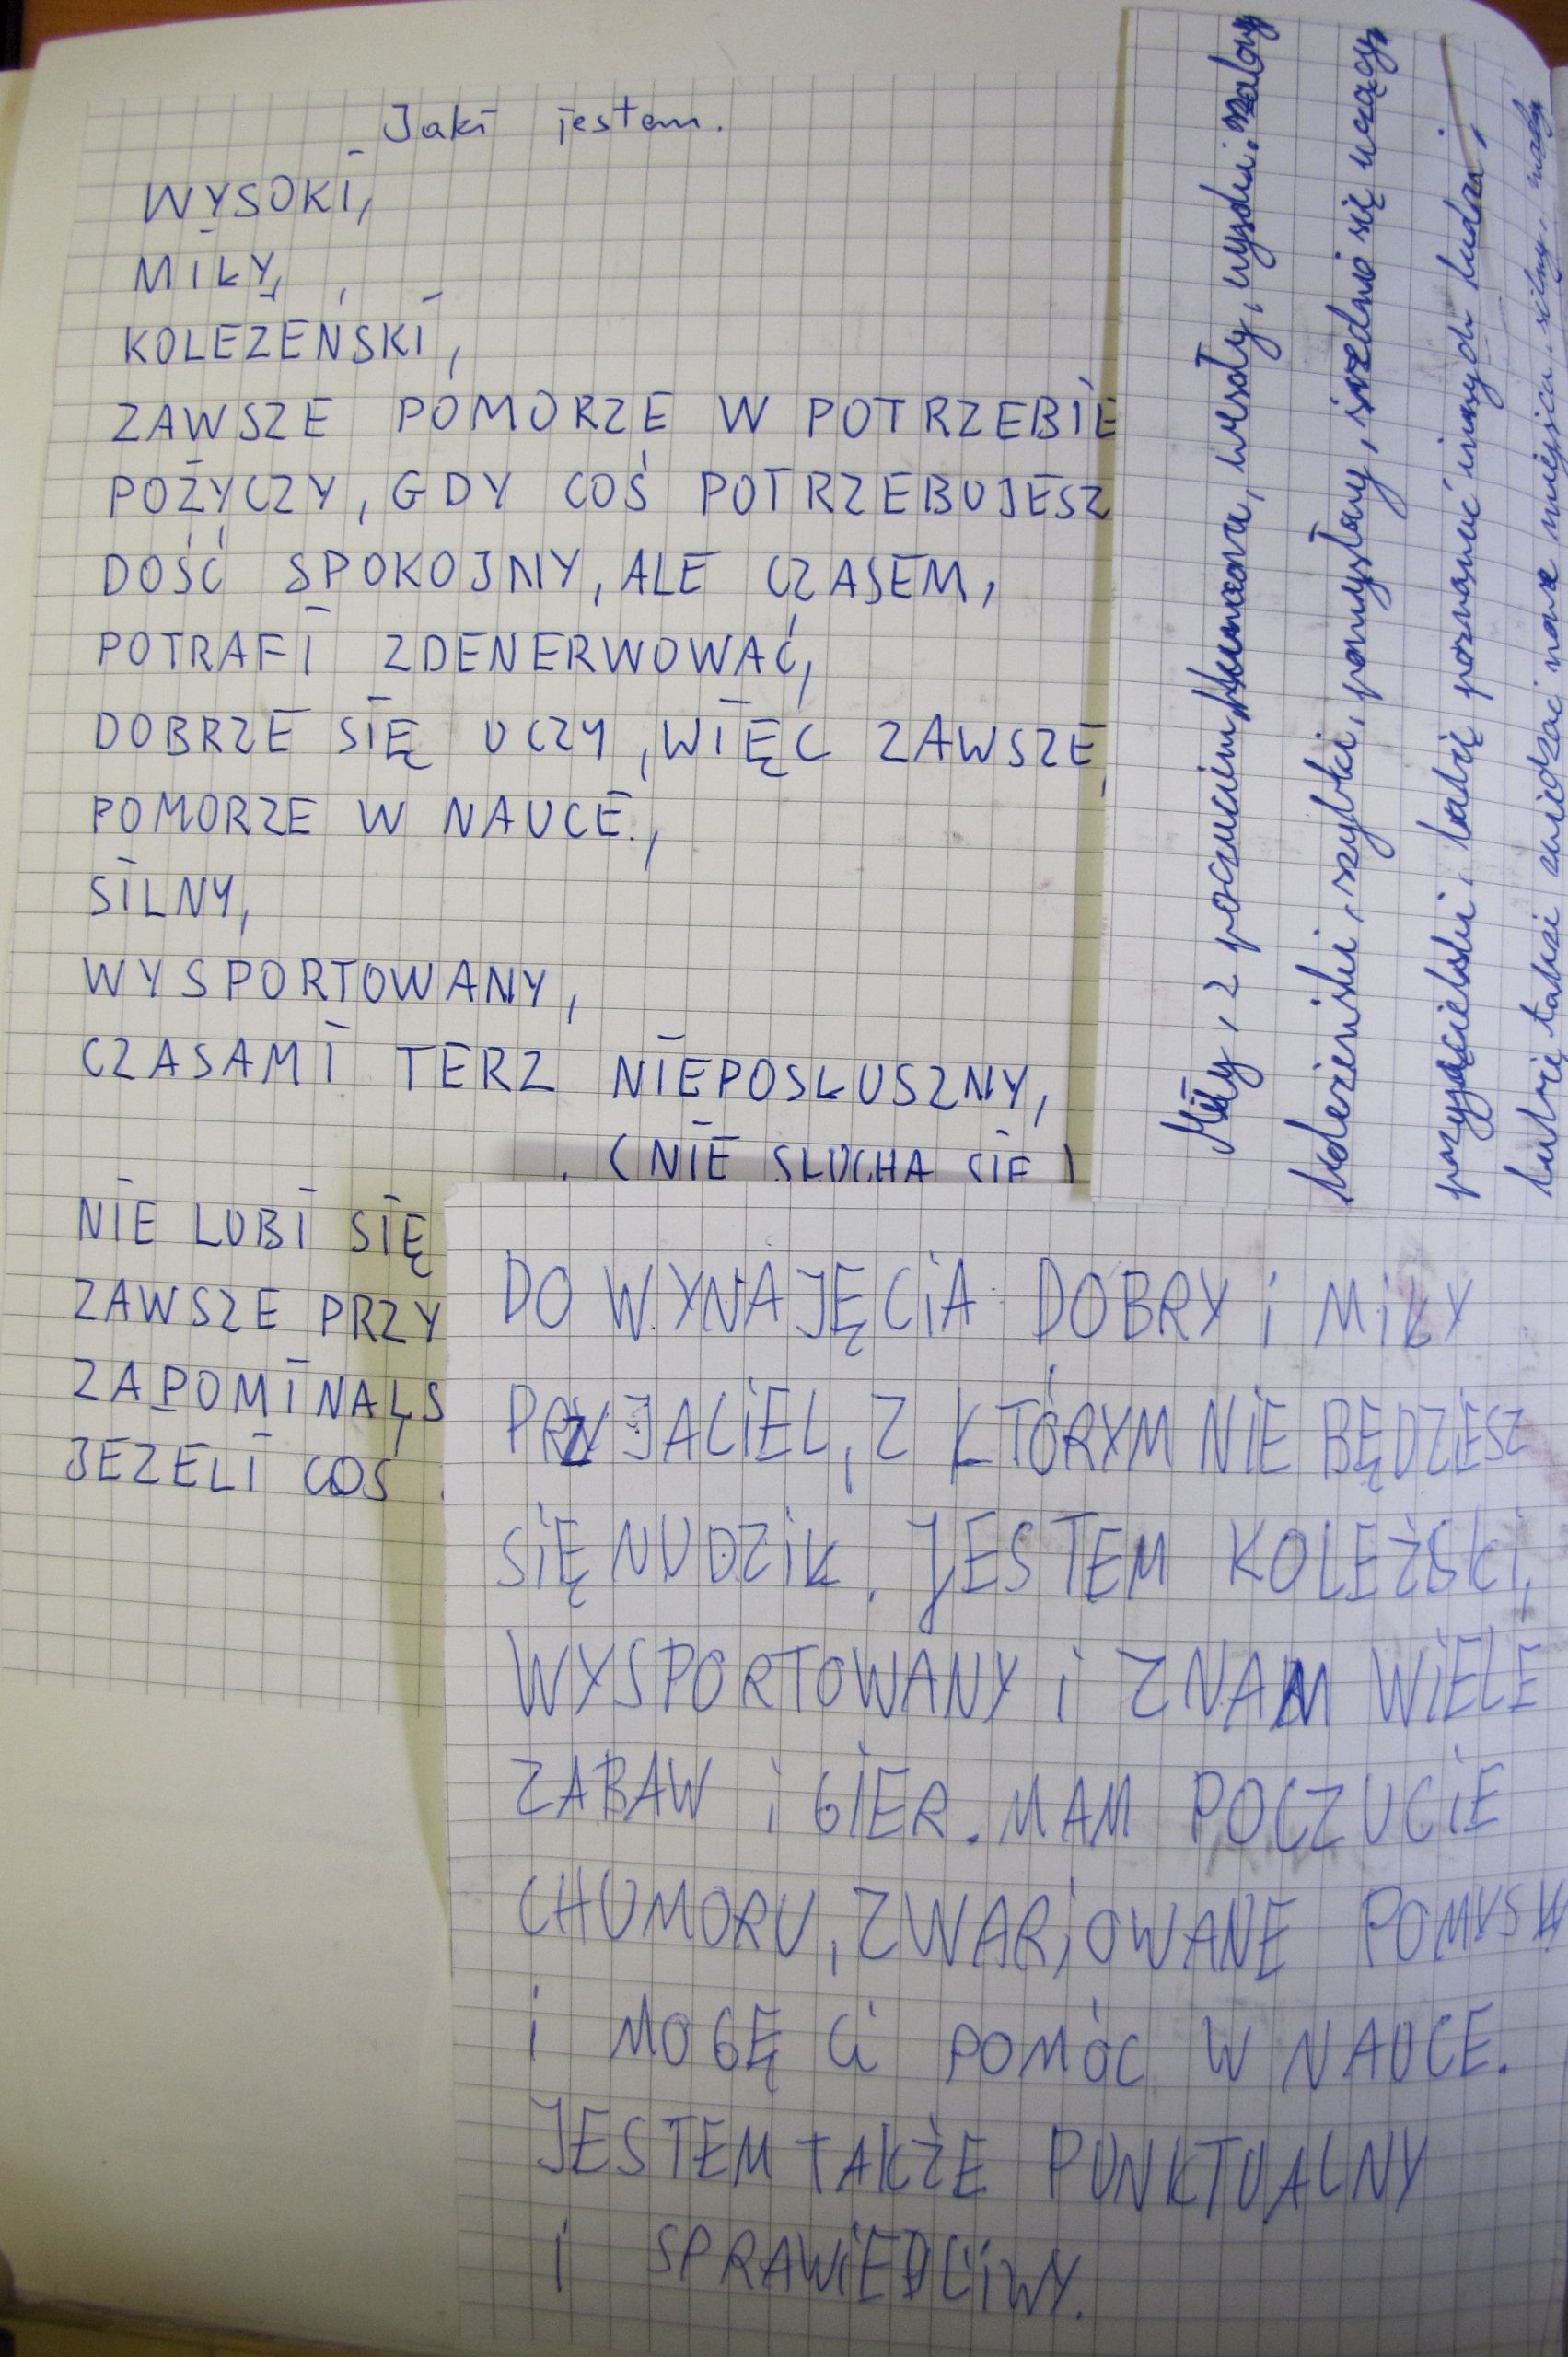 Jaki jestem.
WYSOKI,
MIŁY,
KOLEŻEŃSKI,
ZAWSZE POMORZE W POTRZEBIE
POŻYCZY, GDY COŚ POTRZEBUJESZ
DOŚĆ SPOKOJNY, ALE CZASEM,
POTRAFI ZDENERWOWAĆ,
DOBRZE SIĘ UCZY, WIĘC ZAWSZE
POMORZE W NAUCE.,
SILNY,
WYSPORTOWANY,
CZASAMI TERZ NIEPOSŁUSZNY,
(NIE SŁUCHA SIĘ)
NIE LUBI SIĘ
ZAWSZE PRZY
ZAPOMINALS
JEZELI COS
Miły, z poczuciem humoru, wesoły, wysoki,
koleżeński, szybki, pomysłowy, średnio się uczący
przyjacielski, lubię poznawać innych ludzi,
lubię także zwiedzać nowe miejsca, silny,
DO WYNAJĘCIA DOBRY i MIŁY
PRZYJACIEL, Z KTÓRYM NIE BĘDZIESZ
SIĘ NUDZIŁ. JESTEM KOLEŻSKI,
WYSPORTOWANY i ZNAM WIELE
ZABAW i GIER. MAM POCZUCIE
CHUMORU, ZWARJOWANE POMYSŁY
i MOGĘ Ci POMÓC W NAUCE.
JESTEM TAKŻE PUNKTUALNY
i SPRAWIEDLIWY.